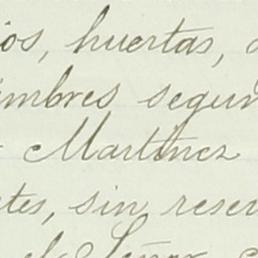 ios, huertas,
umbres segun
Martinez
tes, sin reser
el Señor